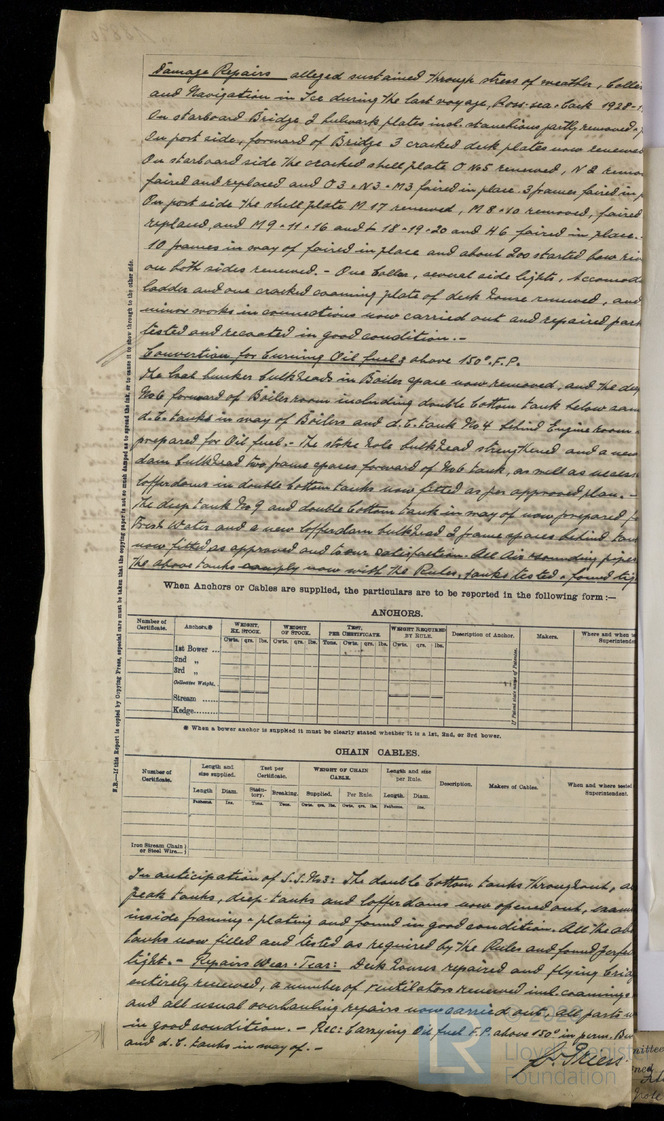 Damage Repairs alleged sustained through stress of weather, Colli
and Navigation in Ice during the last voyage, Ross-sea & back 1928-1
On starboard Bridge 2 bulwark plates incl. stanchions partly removed,
On port side, forward of Bridge 3 cracked deck plates now renewed
On starboard side the cracked shell plate O No5 renewed, N 2 remov
faired and replaced and O 3 & N 3 & M 3 faired in place. 3 frames faired in p
On port side the shell plate M 17 renewed, M 8 & 10 removed, faired
replaced, and M 9 & 11 & 16 and L 18 & 19 & 20 and H 6 faired in place.
10 frames in way of faired in place and about 200 started bow riv
on both sides renewed. - One several side lights, Accomoda
ladder and one cracked coaming plate of deck house renewed, and
minor works in connections now carried out and repaired part
tested and recoated in good condition. -
Convertion for burning Oil fuel, above 150° F.P.
The coal bunker bulkheads in Boiler space now removed, and the deep
No6 forward of Boiler room including double bottom tank below
d.b. tanks in way of Boilers and d.b. tank No 4 behind Engine room
prepared for Oil fuel. - The stoke hole bulkhead strengthened and a new
dam bulkhead two frame spaces forward of No6 tank, as well as
Cofferdams in double bottom tanks now fitted as per approved plan. -
The deep tank No 9 and double bottom tank in way of now prepared f
Fresh Water and a new Cofferdam bulkhead 2 frame spaces behind
now fitted as approved and to our satisfaction. All Air & sounding pipes
The above tanks comply now with the Rules, tanks tested & found tig
When Anchors or Cables are supplied, the particulars are to be reported in the following form :—
ANCHORS.
Number of Certificate. Anchors.* WEIGHT, EX. STOCK. WEIGHT OF STOCK. TEST, PER CERTIFICATE. WEIGHT REQUIRED BY RULE. Description of Anchor. Makers. Where and when t Superintenden
Cwts. qrs. lbs. Cwts. qrs. lbs. Tons. Cwts. qrs. lbs. Cwts. qrs. lbs.
1st Bower ...
2nd „
3rd „
Collective Weight.
Stream ......
Kedge.........
If Patent state name of Patentee.
* When a bower anchor is supplied it must be clearly stated whether it is a 1st, 2nd, or 3rd bower.
CHAIN CABLES.
Number of Certificate. Length and size supplied. Test per Certificate. WEIGHT OF CHAIN CABLE. Length and size per Rule. Description. Makers of Cables. When and where tested Superintendent.
Length Diam. Statutory. Breaking. Supplied. Per Rule. Length. Diam.
Fathoms. Ins. Tons. Tons. Cwts. qrs. lbs. Cwts. qrs. lbs. Fathoms. Ins.
Iron Stream Chain
or Steel Wire...
In anticipation of S.S. No3: The double bottom tanks throughout,
peak tanks, deep tanks and Cofferdams now opened out, exam
inside framing & plating and found in good condition. All the abo
tanks now filled and tested as required by the Rules and found perfec
tight. - Repairs Wear & Tear: Deck houses repaired and flying bridg
entirely renewed, a number of ventilators renewed incl. coamings
and all usual overhauling repairs now carried out. All parts
in good condition. - Rec: Carrying Oil fuel F.P. above 150° in perm. Bu
and d.b. tanks in way of. -
N.B.—If this Report is copied by Copying Press, especial care must be taken that the copying paper is not so much damped as to spread the ink, or to cause it to show through to the other side.
LR
Lloyd's Register
Foundation